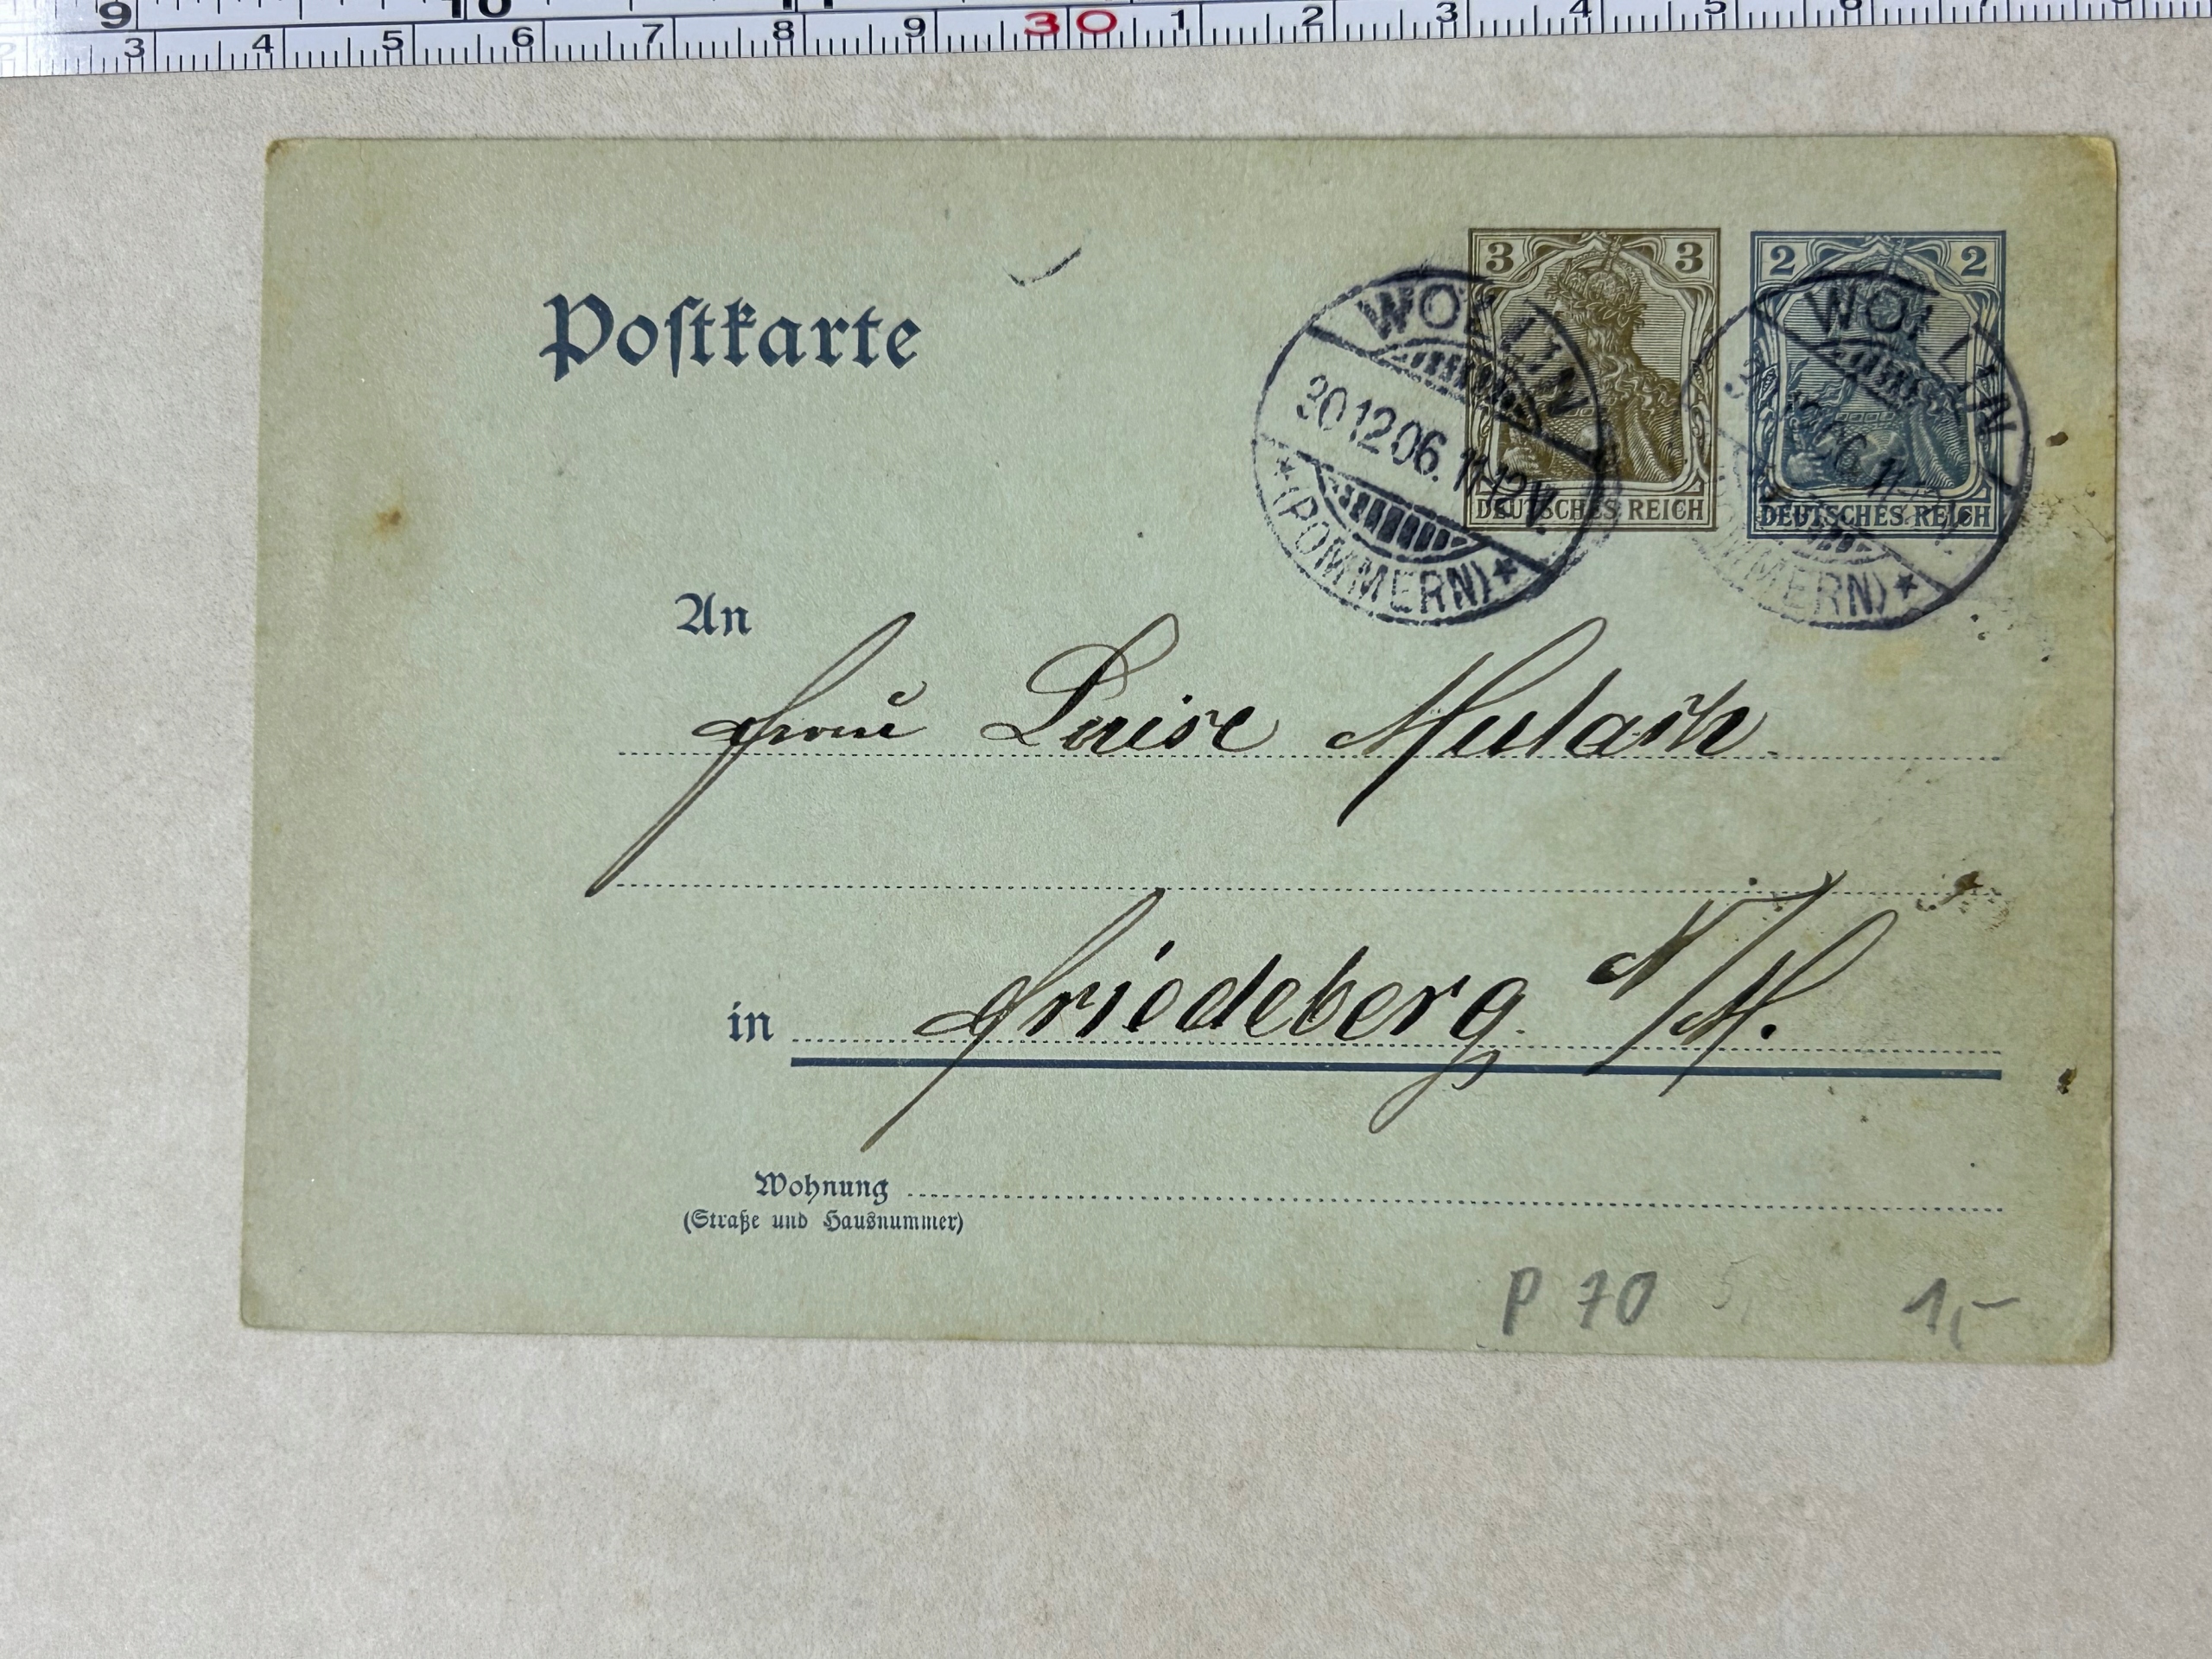 9 10 11
2 3 4 5 6 7 8 9 30 1 2 3 4 5 6 7 8
Poſtkarte
3 3 2 2
WOLLIN WOLLIN
30.12.06. 11-12V.
DEUTSCHES REICH DEUTSCHES REICH
*(POMMERN)* MMERN)*
An
Frau Luise
in Friedeberg N/M.
Wohnung
(Straße und Hausnummer)
P 70 1,-